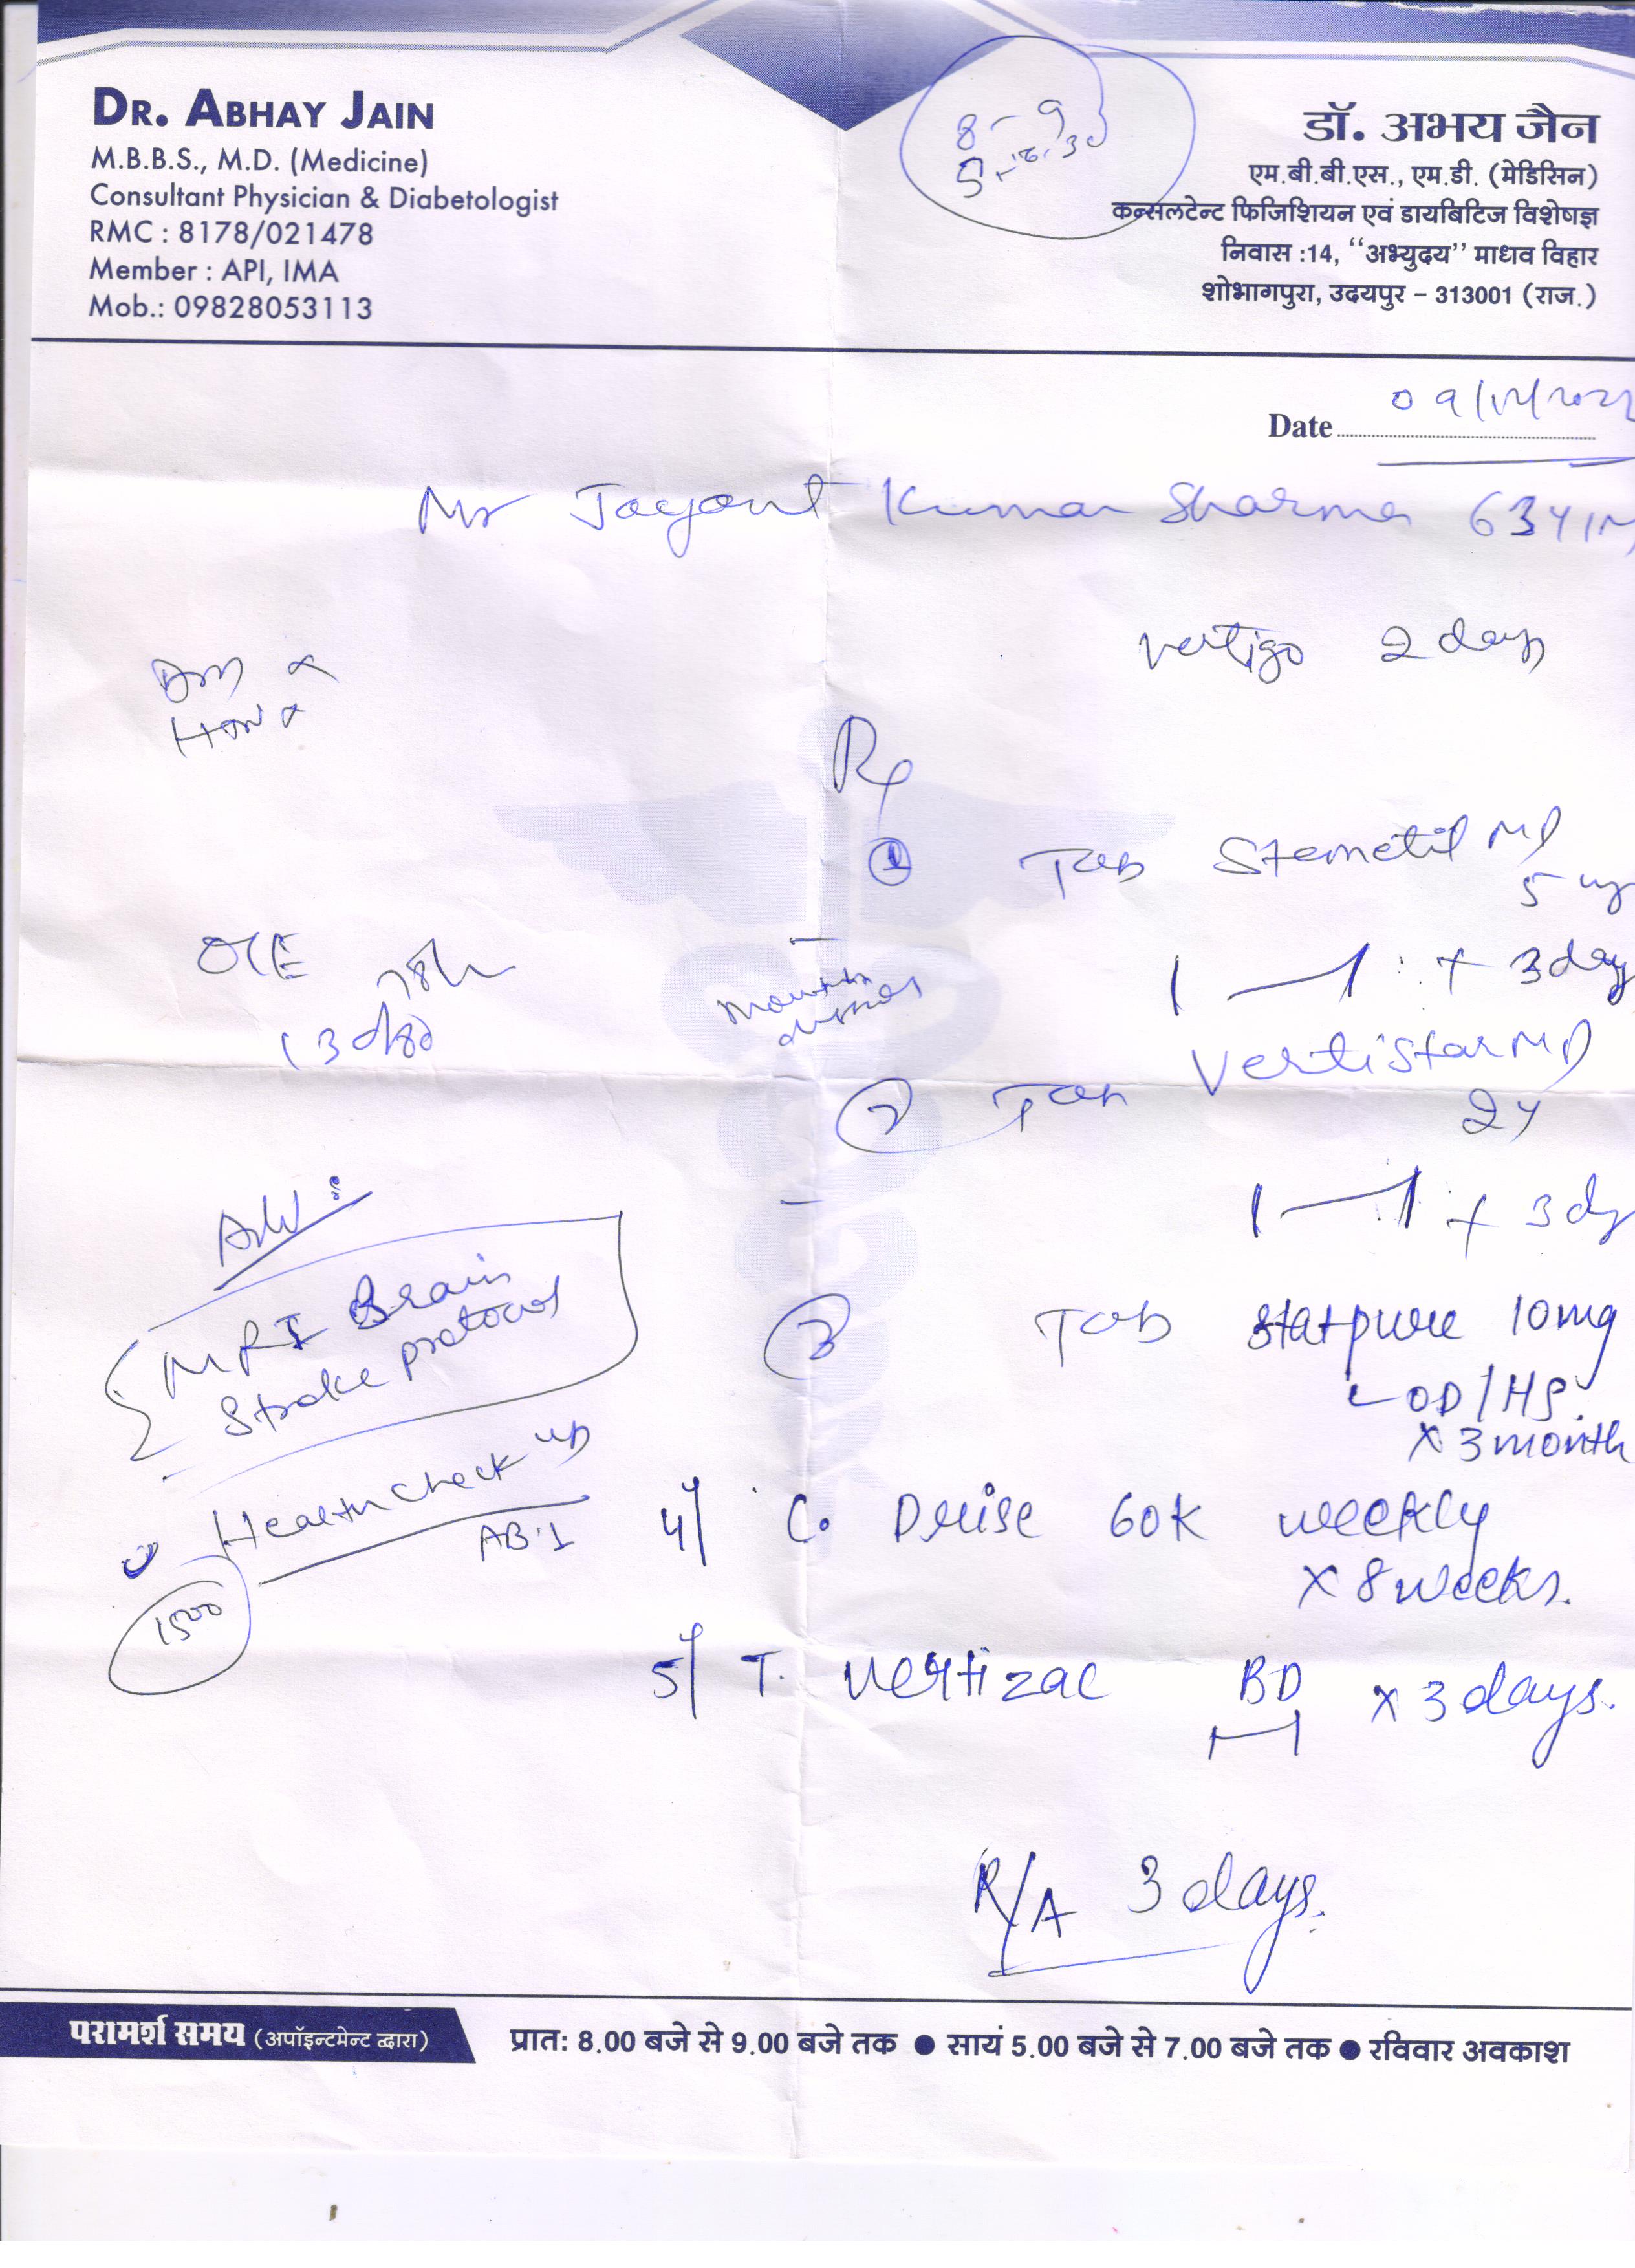 DR. ABHAY JAIN
M.B.B.S., M.D. (Medicine)
Consultant Physician & Diabetologist
RMC : 8178/021478
Member : API, IMA
Mob.: 09828053113
8 - 9
डॉ. अभय जैन
एम.बी.बी.एस., एम.डी. (मेडिसिन)
कन्सलटेन्ट फिजिशियन एवं डायबिटिज विशेषज्ञ
निवास :14, "अभ्युदय" माधव विहार
शोभागपुरा, उदयपुर - 313001 (राज.)
Date
Mr Jayant Kumar Sharma 63Y/M
Vertigo 2 days
DM x
HTN x
Rx
① Tab Stemetil MD
5 mg
1 — 1 x 3 day
O/E 78/
130/80
mouth
② Tab Vertistar MD
1 — 1 x 3 dy
Adv:
MRI Brain
Stroke protocol
③ Tab Statpure 10mg
OD/HS
x 3 month
Health check up
AB:1
1500
4) C. Drise 60K weekly
x 8 weeks.
5) T. Vertizac BD x 3 days.
R/A 3 days.
परामर्श समय (अपॉइन्टमेन्ट द्वारा) प्रात: 8.00 बजे से 9.00 बजे तक ● सायं 5.00 बजे से 7.00 बजे तक ● रविवार अवकाश